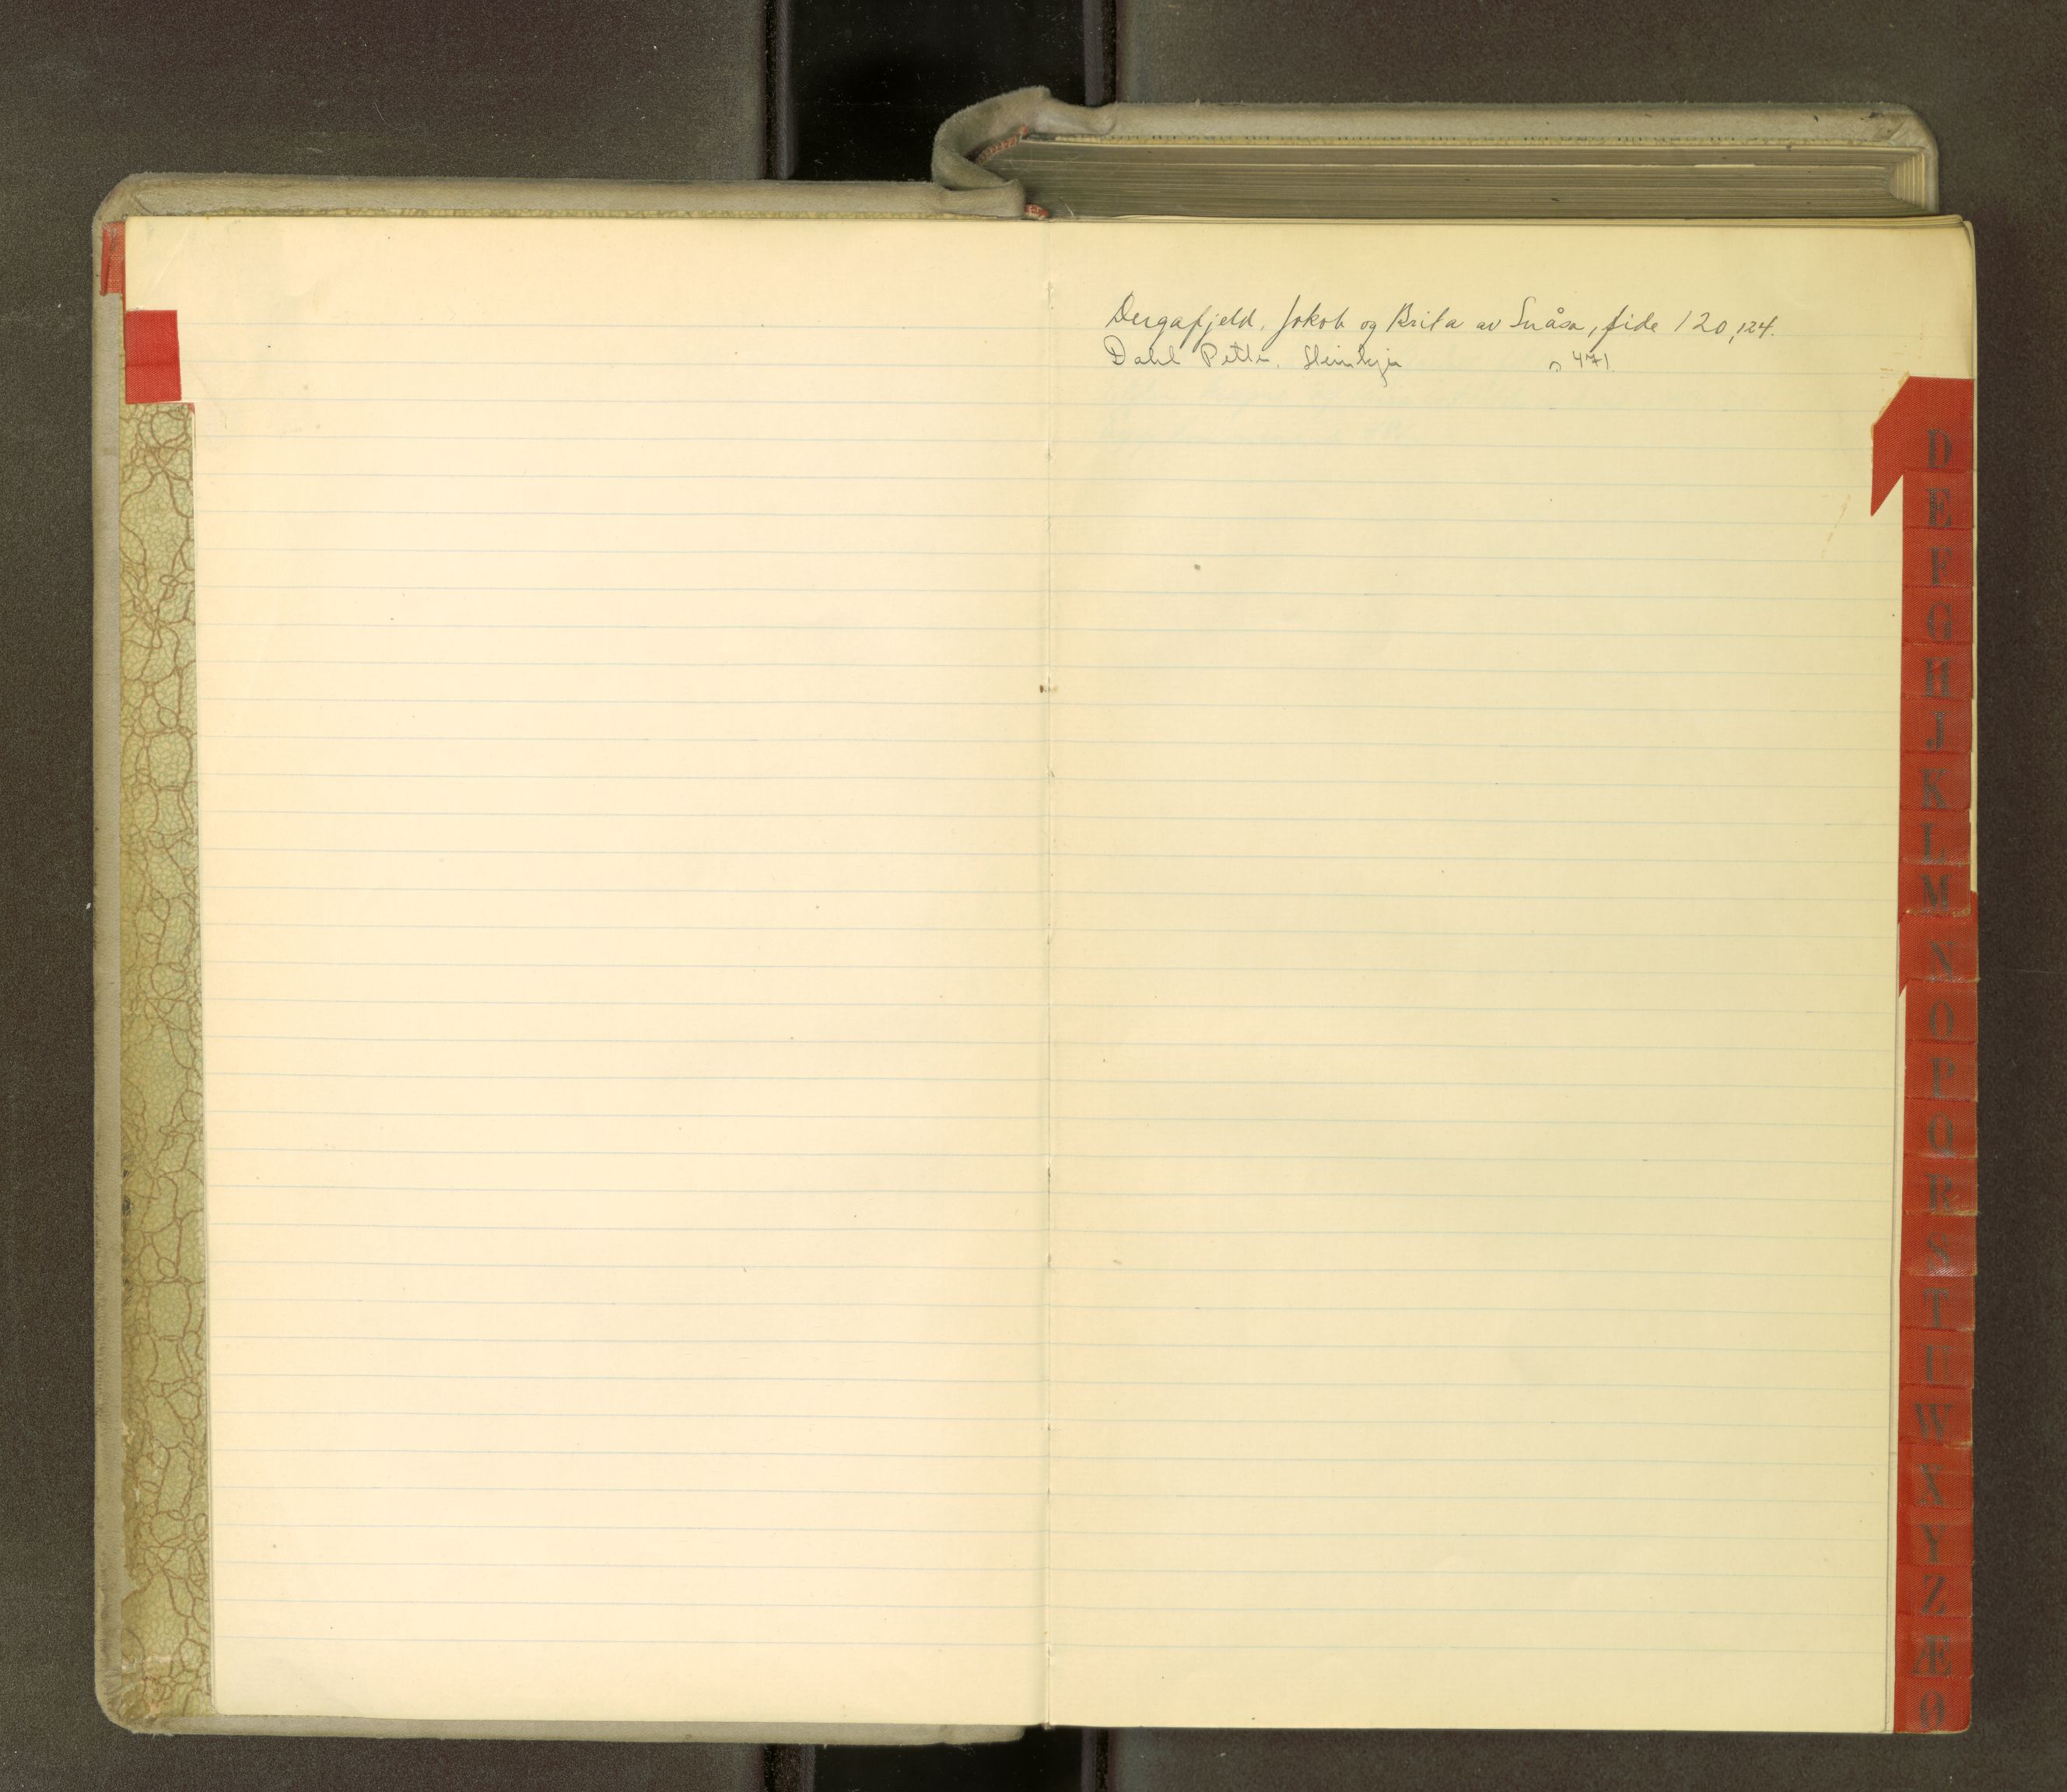 Dergafjeld, Jokob og Brita av Snåsa, side 120, 124.
Dahl Petter, Steinkjer " 471
D
E
F
G
H
J
K
L
M
N
O
P
Q
R
S
T
U
W
X
Y
Z
Æ
Ø